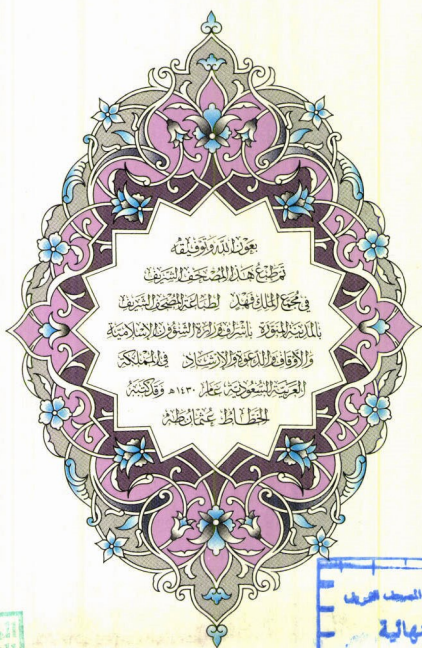 بعون الله وتوفيقه
تم طبع هذا المصحف الشريف
في مجمع الملك فهد لطباعة المصحف الشريف
بالمدينة المنورة بإشراف وزارة الشؤون الإسلامية
والأوقاف والدعوة والإرشاد في المملكة
العربية السعودية عام ١٤٣٠ هـ وقد كتبه
الخطاط عثمان طه
المصحف الشريف